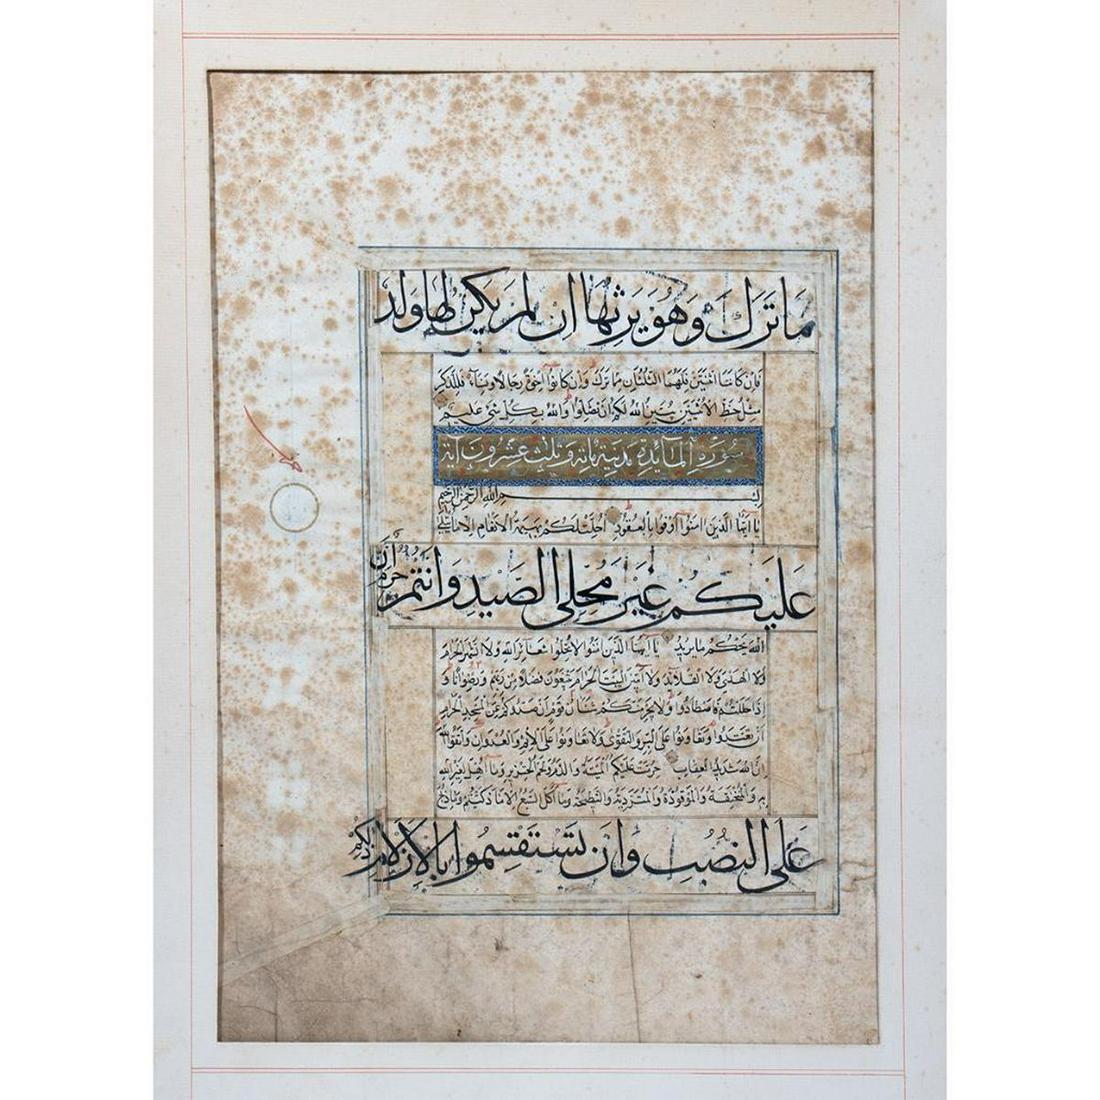 مَا تَرَكَ وَهُوَ يَرِثُهَا ان لم يكن لها ولد
فَإِن كانتا اثنتين فَلَهُمَا الثلثان مما ترك وَإن كانوا اخوة رجالا ونساء فللذكر
مثل حظ الأنثيين يبين الله لكم ان تضلوا والله بكل شئ عليم
سورة المآئدة مدنية مائة وثلث عشرون آية
بسم الله الرحمن الرحيم
يا ايها الذين امنوا اوفوا بالعقود احلت لكم بهيمة الانعام الا ما يتلى
عَلَيكم غَيْرَ مُحلى الصيد وَانتم حرم ان
الله يحكم ما يريد يا ايها الذين امنوا لا تحلوا شعائر الله ولا الشهر الحرام
ولا الهدى ولا القلائد ولا آمين البيت الحرام يبتغون فضلا من ربهم ورضوانا و
اذا حللتم فاصطادوا ولا يجرمنكم شنان قوم ان صدوكم عن المسجد الحرام
ان تعتدوا وتعاونوا على البر والتقوى ولا تعاونوا على الاثم والعدوان واتقوا الله
ان الله شديد العقاب حرمت عليكم الميتة والدم ولحم الخنزير وما اهل لغير الله
به والمنخنقة والموقوذة والمتردية والنطيحة وما اكل السبع الا ما ذكيتم وما ذبح
عَلى النصُبِ وَان تستقسِمُوا بالازلام ذلكم